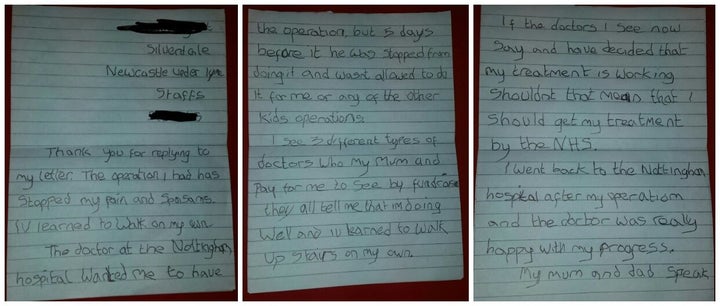 Silverdale
Newcastle under lyme
Staffs
Thank you for replying to
my letter. The operation I had has
stopped my pain and Spasams.
IV learned to walk on my own
The doctor at the Nottingham
hospital wanted me to have
the operation, but 5 days
before it he was stopped from
doing it and wasnt allowed to do
It for me or any of the other
kids operations.
I see 3 different types of
doctors who my Mum and
Pay for me to See by fundraise
they all tell me that im doing
Well and iv learned to Walk
Up Stays on my own.
If the doctors I see now
Say and have decided that
my treatment is working
Shouldnt that mean that I
should get my treatment
by the NHS.
I went back to the Nottingham
hospital after my operation
and the doctor was really
happy with my Progress.
My mum and dad Speak